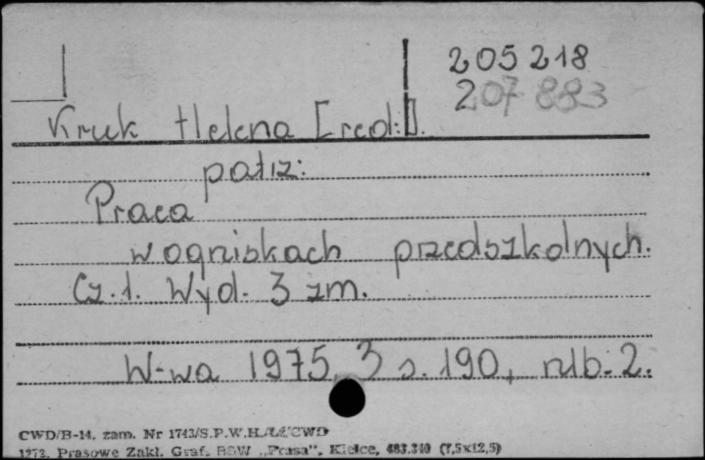 205218
207 883
Kruk Helena [red.].
patrz:
Praca
w ogniskach przedszkolnych.
Cz. 1. Wyd. 3 zm.
W-wa 1975, 3 s. 190, nlb. 2.
CWD/B-14. zam. Nr 1743/S.P.W.H.
1973. Prasowe Zakl. Graf. RSW „Prasa", Kielce, 483.340 (7,5x12,5)